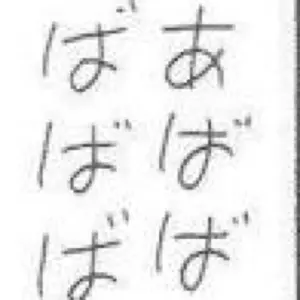 あばば
ばばば